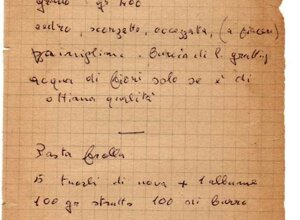 grano gr 400
cedro, scorzetta, cocozzata, (a piacere)
vainiglina. Buccia di l. gratt.
acqua di fiori solo se è di
ottima qualità
Pasta frolla
5 tuorli di uova + 1 albume
100 gr strutto 100 di burro